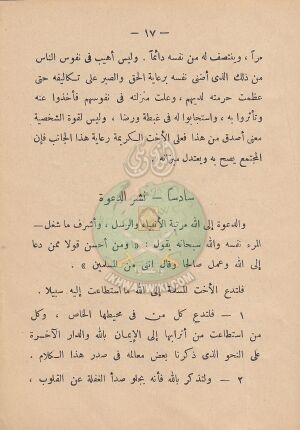 — ١٧ —
مرآ ، وينتصف له من نفسه دائماً . وليس أهيب فى نفوس الناس
من ذلك الذى أضنى نفسه برعاية الحق والصبر على تكاليفه حتى
عظمت حرمته لديهم ، وعلت منزلته فى نفوسهم فأخذوا عنه
وتأثروا به ، واستجابوا له فى غبطة ورضا ، وليس لقوة الشخصية
معنى أصدق من هذا فعلى الأخت الكريمة رعاية هذا الجانب فإن
المجتمع يصح به ويعتدل ميزانه .
سادساً — نشر الدعوة
والدعوة إلى الله مرتبة الأنبياء والرسل ، وأشرف ما شغل
المرء نفسه والله سبحانه يقول : « ومن أحسن قولا ممن دعا
إلى الله وعمل صالحا وقال إننى من المسلمين » .
فلتدع الأخت المسلمة إلى الله ما استطاعت إليه سبيلا .
١ — فلتدع كل من فى محيطها الخاص ، وكل
من استطاعت من أترابها إلى الإيمان بالله والدار الآخرة
على النحو الذى ذكرنا بعض معالمه فى صدر هذا الكلام .
٢ — ولتذكر بالله فأنه يجلو صدأ الغفلة عن القلوب ،
IKHWANWIKI.COM